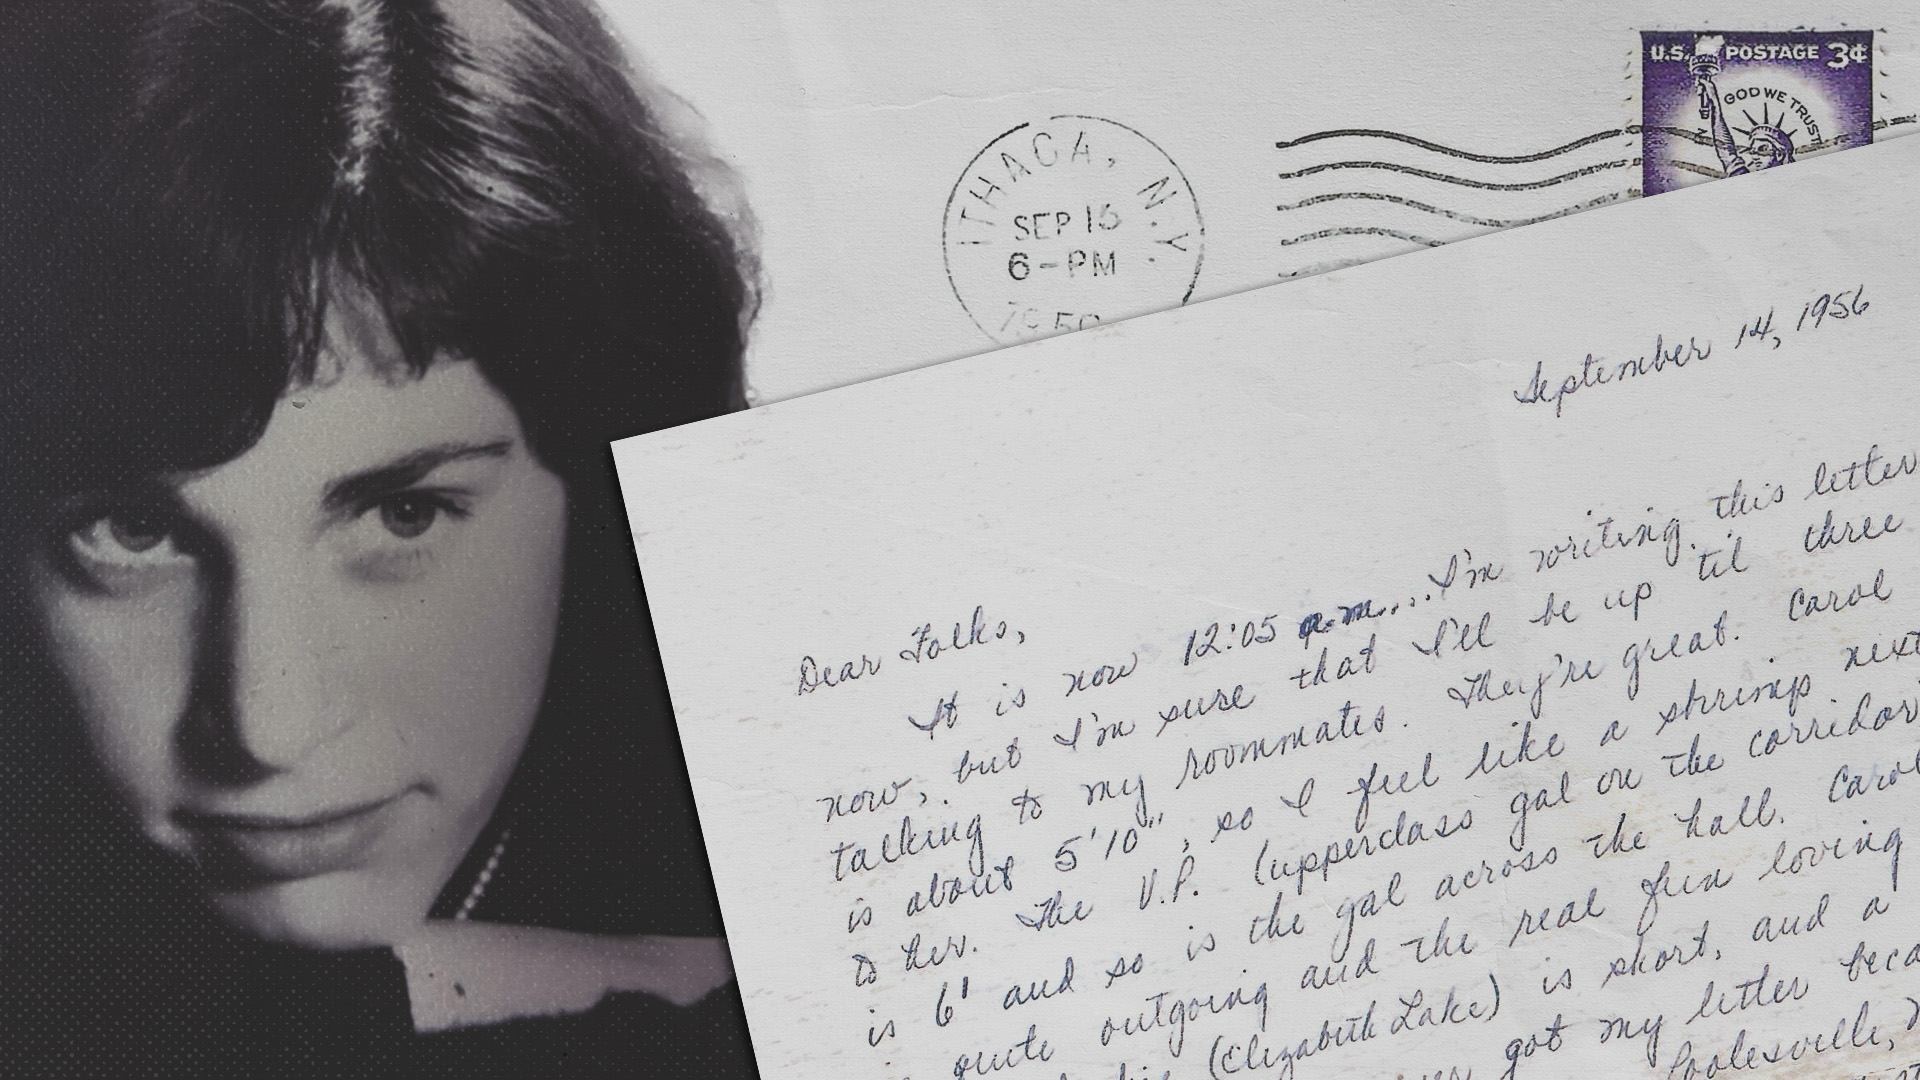 U.S. POSTAGE 3¢
GOD WE TRUST
ITHACA, N.Y.
SEP 15
6-PM
September 14, 1956
Dear Folks,
It is now 12:05 a.m....I'm writing this letter
now, but I'm sure that I'll be up til three
talking to my roommates. They're great. Carol
is about 5'10", so I feel like a shrimp next
to her. The V.P. (upperclass gal on the corridor)
is 6' and so is the gal across the hall. Carol
quite outgoing and the real fun loving
(Elizabeth Lake) is short, and a
got my letter beca
Poolesville,